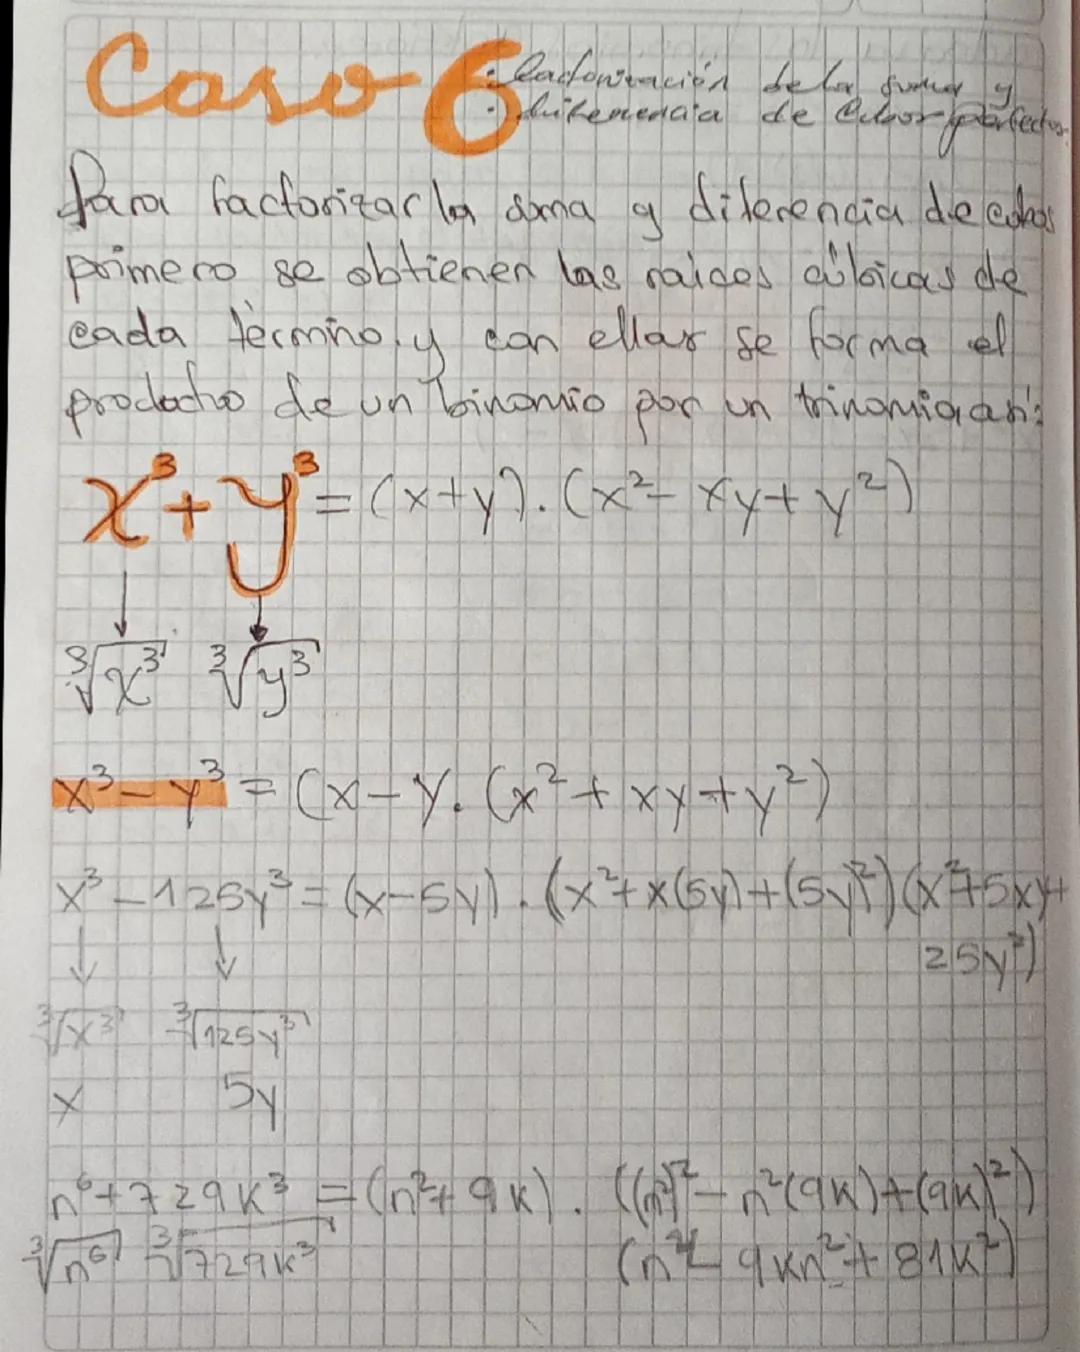 Caso 6
· Factorización de la suma y
· diferencia de cubos perfectos
Para factorizar la suma y diferencia de cubos
primero se obtienen las raices cúbicas de
cada término, y con ellas se forma el
producto de un binomio por un trinomio así:
x³ + y³ = (x+y).(x² - xy + y²)
∛x³ ∛y³
x³ - y³ = (x - y. (x² + xy + y²)
x³ - 125y³ = (x-5y) . (x² + x(5y) + (5y)²) (x² + 5xy +
25y²)
∛x³ ∛125y³
x 5y
n⁶ + 729k³ = (n² + 9k) . ((n²)² - n²(9k) + (9k)²)
∛n⁶ ∛729k³ (n⁴ - 9kn² + 81k²)